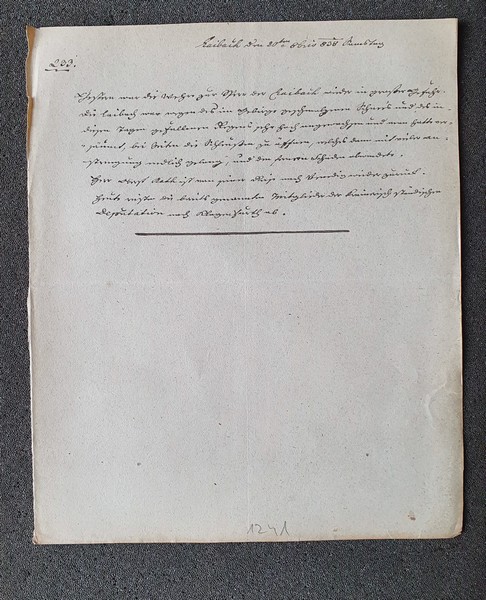 Laibach den 20ten 8bris 838 Samstag
233.
Gestern war die Wehre zur Meer der Laibach wieder in großer Gefahr.
Die Laibach war wegen des im Gebirge geschmolzenen Schnees und des in
diesen Tagen gefallenen Regens sehr hoch angewachsen und man hatte ver-
säumt, bei Zeiten die Schleusen zu öffnen, welches dann mit vieler An-
strengung endlich gelang, und den Schaden abwendete.
Herr Rath ist von seiner Reise nach Venedig wieder zurück.
Heute reisten die bereits genannten Mitglieder der krainerisch ständischen
Deputation nach Klagenfurth ab.
1241